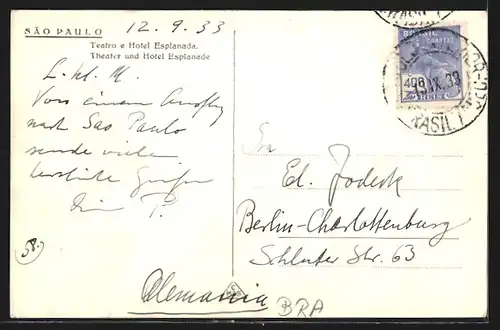 SÃO PAULO
12.9.33
Teatro e Hotel Esplanada.
Theater und Hotel Esplanade
L. kl. M.
Von einem Ausflug
nach Sao Paulo
sende vielen
herzliche Grüße
Dein P.
58.-
BRASIL
CORREIO
400
IX.33
BRASIL
Ed. Jodeck
Berlin-Charlottenburg
Schluter Str. 63
Alemania
BRA